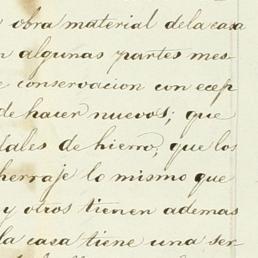 y obra material de la casa
n algunas partes mes-
e conservacion con ecep
de hacer nuevos; que
dales de hierro, que los
herraje lo mismo que
y otros tienen ademas
la casa tiene una ser